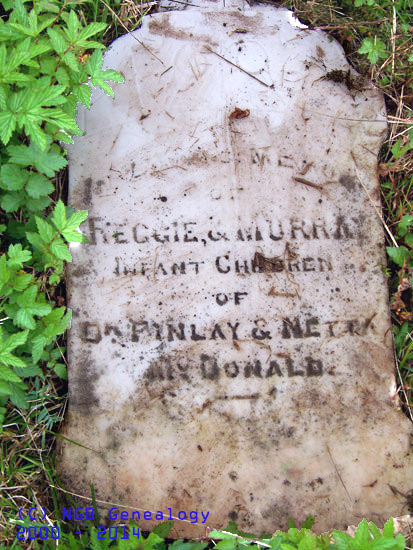 OF
REGGIE, & MURRAY
INFANT CHILDREN
OF
DR FINLAY & NETTA
McDONALD.
(C) NGB Genealogy
2000 - 2014